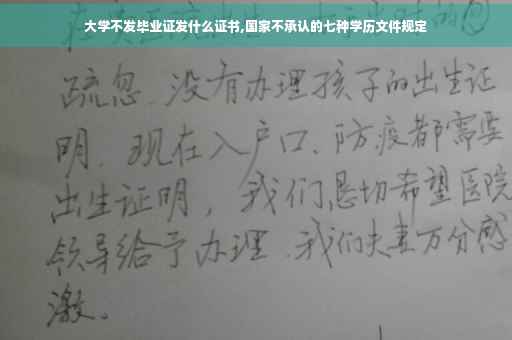 大学不发毕业证发什么证书,国家不承认的七种学历文件规定
疏忽、没有办理孩子的出生证
明、现在入户口、防疫都需要
出生证明，我们恳切希望医院
领导给予办理、我们夫妻万分感
激。